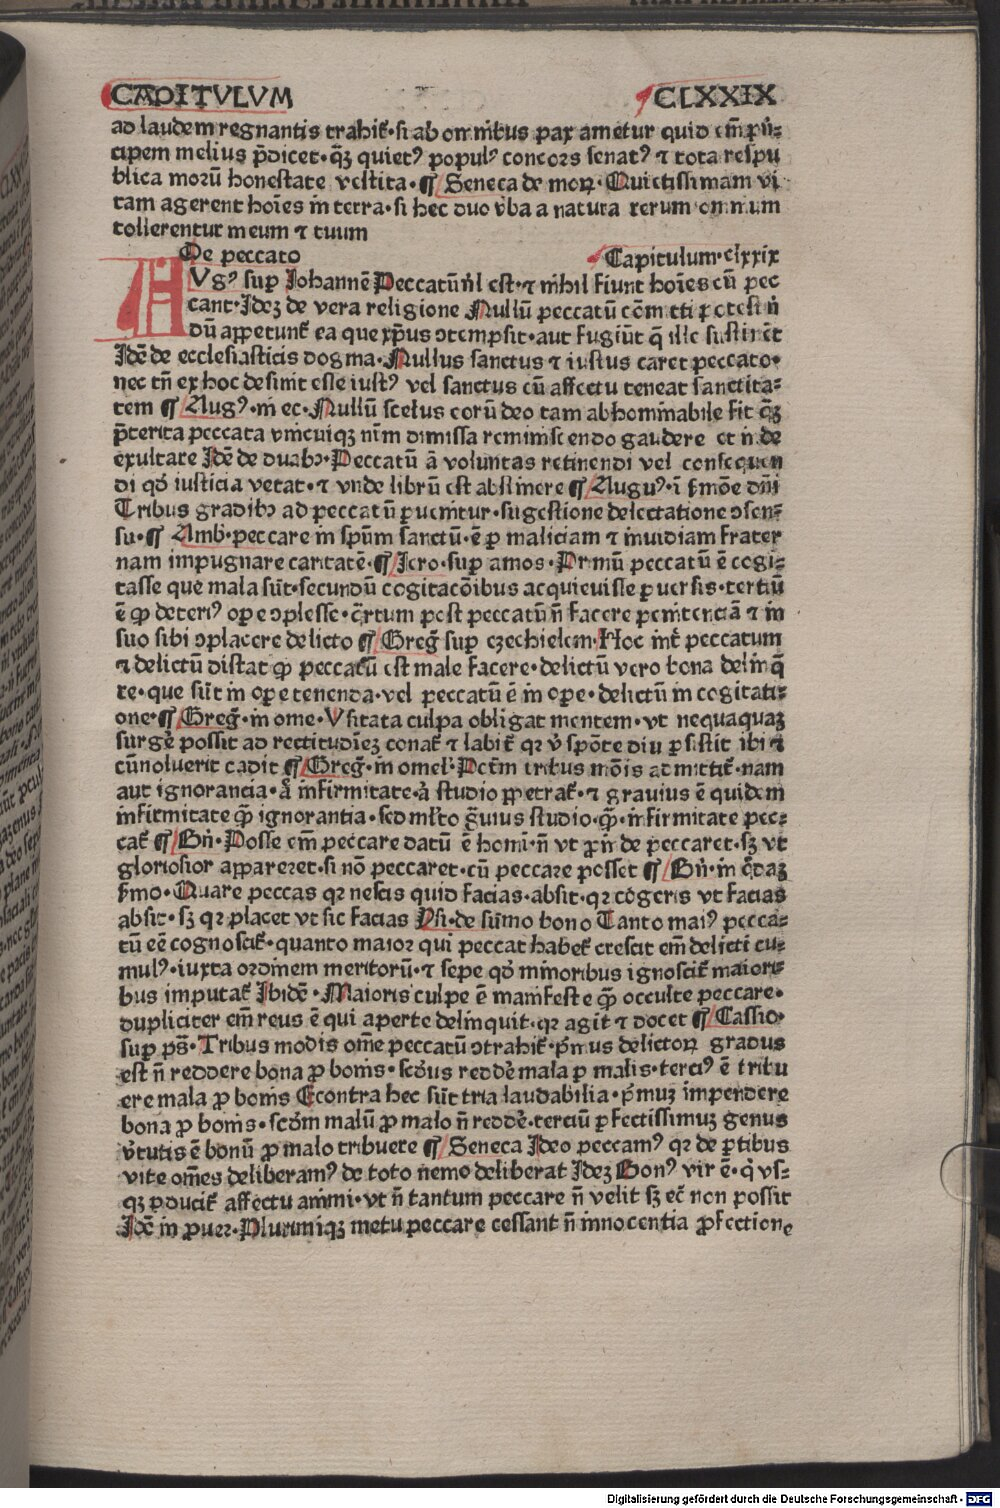 CAPITVLVM CLXXIX
ad laudem regnantis trahit̃·si ab omnibus pax ametur quid em̃ prī⸗
cipem melius p̄dicet·qz̃ quietꝰ populꝰ concors senatꝰ ⁊ tota respu
blica morū honestate vestita·¶ Seneca de moꝝ·Quietissimam vi
tam agerent hoīes in terra·si hec duo v̄ba a natura rerum omnium
tollerentur meum ⁊ tuum
De peccato Capitulum·clxxix
AVgꝰ sup̱ Johannē Peccatū nl̄ est·⁊ nihil fiunt hoīes cū pec
cant·Idez de vera religione Nullū peccatū cōmitti potest n̄
dū appetunt̃ ea que xp̄us ꝯtempsit·aut fugiūt q̄ ille sustinēt
Idē de ecclesiasticis dogma·Nullus sanctus ⁊ iustus caret peccato·
nec tn̄ ex hoc desinit esse iustꝰ vel sanctus cū affectu teneat sanctita⸗
tem ¶ Augꝰ·in ec·Nullū scelus corū deo tam abhominabile fit qz̃
p̄terita peccata vnicuiqz nīm dimissa reminiscendo gaudere et in de
exultare Idē de duabꝯ·Peccatū ā voluntas retinendi vel consequen
di qd̓ iusticia vetat·⁊ vnde librū est abstinere ¶ Auguꝰ·ī s̄mōe dn̄i
Tribus gradibꝯ ad peccatū ꝑuenitur·sugestione delectatione ꝯsen⸗
su·¶ Amb·peccare in sp̄um sanctū·ē ꝑ maliciam ⁊ inuidiam frater
nam impugnare caritatē·¶ Jero·sup̱ amos·Primū peccatū ē cogi⸗
tasse que mala sūt·secundū cogitacōibus acquieuisse ꝑuersis·tertiū
ē qd̓ deterꝰ ope ꝯplesse·q̄rtum post peccatū n̄ facere penitenciā ⁊ in
suo sibi ꝯplacere delicto ¶ Greg̃ sup̱ ezechielem·Hoc int̃ peccatum
⁊ delictū distat qd̓ peccatū est male facere·delictū vero bona delinq̄
re·que sūt in ope tenenda·vel peccatū ē in ope·delictū in cogitati⸗
one·¶ Greg̃·in ome·Vsitata culpa obligat mentem·vt nequaquaz
surgē possit ad rectitudīez conat̃ ⁊ labit̃ qꝛ v̄ spōte diu ꝑsistit ibi ⁊
cū noluerit cadit ¶ Greg̃·in omel·Pctm̃ tribus mōis admittit̃·nam
aut ignorancia·ā infirmitate·ā studio ꝓpetrat̃·⁊ grauius ē quidem
infirmitate qp̄ ignorantia·sed ml̓to g̃uius studio·qp̄·infirmitate pec⸗
cat̃ ¶ Bn̄·Posse em̃ peccare datū ē homi·n̄ vt ꝓīn de peccaret·sz vt
gloriosior appareret·si nō peccaret·cū peccare posset ¶ Bn̄·in q̄daz
s̄mo·Quare peccas qꝛ nescis quid facias·absit·qꝛ cōgeris vt facias
absit·sz qꝛ placet vt sic facias Ysi·de sūmo bono Tanto maiꝰ pecca⸗
tū eē cognoscit̃·quanto maior qui peccat habet̃ crescit em̃ delicti cu⸗
mulꝰ·iuxta ordinem meritorū·⁊ sepe qd̓ minoribus ignoscit̃ maiori⸗
bus imputat̃ Ibidē·Maioris culpe ē manifeste qp̄ occulte peccare·
dupliciter em̃ reus ē qui aperte delinquit·qꝛ agit ⁊ docet ¶ Cassio·
sup̱ ps̄·Tribus modis om̄e peccatū ꝯtrahit̃·p̄mus delictoꝝ gradus
est n̄ reddere bona ꝓ bonis·scd̄us reddē mala ꝓ malis·terciꝰ ē tribu
ere mala ꝓ bonis Econtra hec sūt tria laudabilia·p̄muz impendere
bona ꝓ bonis·scd̄m malū ꝓ malo n̄ reddē·terciū ꝑfectissimuz genus
v̄tutis ē bonū ꝓ malo tribuere ¶ Seneca Ideo peccamꝰ qꝛ de ꝑtibus
vite om̄es deliberamꝰ de toto nemo deliberat Idez Bonꝰ vir ē·q̄ vs⸗
qz ꝑducit̃ affectu animi·vt n̄ tantum peccare n̄ velit sz ec̄ non possit
Idē in ꝓuer·Plurimiqz metu peccare cessant n̄ innocentia ꝓfectione
Digitalisierung gefördert durch die Deutsche Forschungsgemeinschaft · DFG